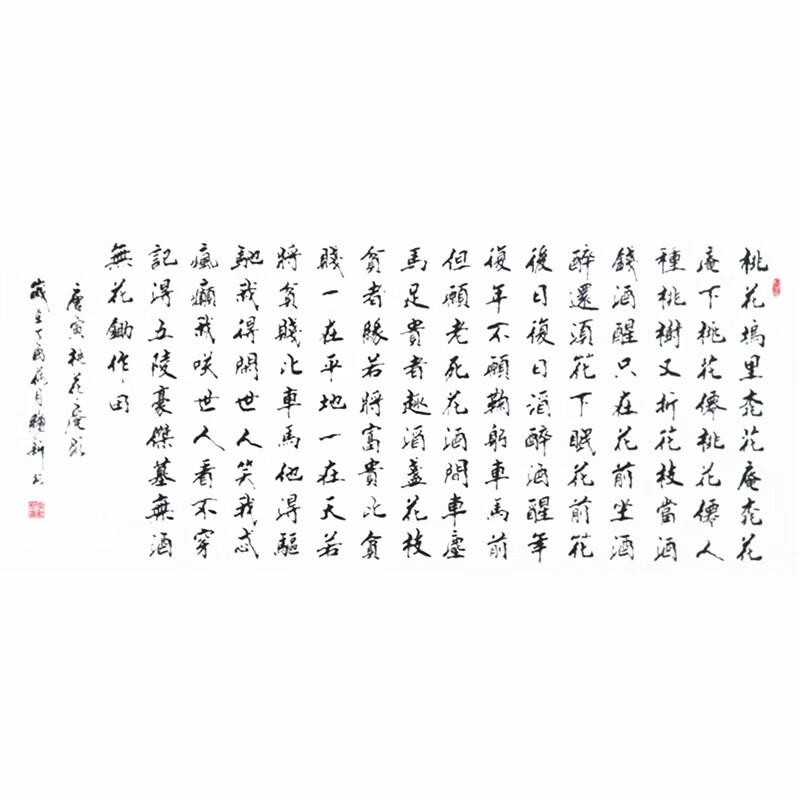 桃花塢里桃花庵桃花
庵下桃花僊桃花僊人
種桃樹又折花枝當酒
錢酒醒只在花前坐酒
醉還須花下眠花前花
後日復日酒醉酒醒年
復年不願鞠躬車馬前
但願老死花酒間車塵
馬足貴者趣酒盞花枝
貧者緣若將富貴比貧
賤一在平地一在天若
將貧賤比車馬他得驅
馳我得閑世人笑我忒
瘋癲我咲世人看不穿
記得五陵豪傑墓無酒
無花鋤作田
唐寅桃花庵歌
歲在丁酉月